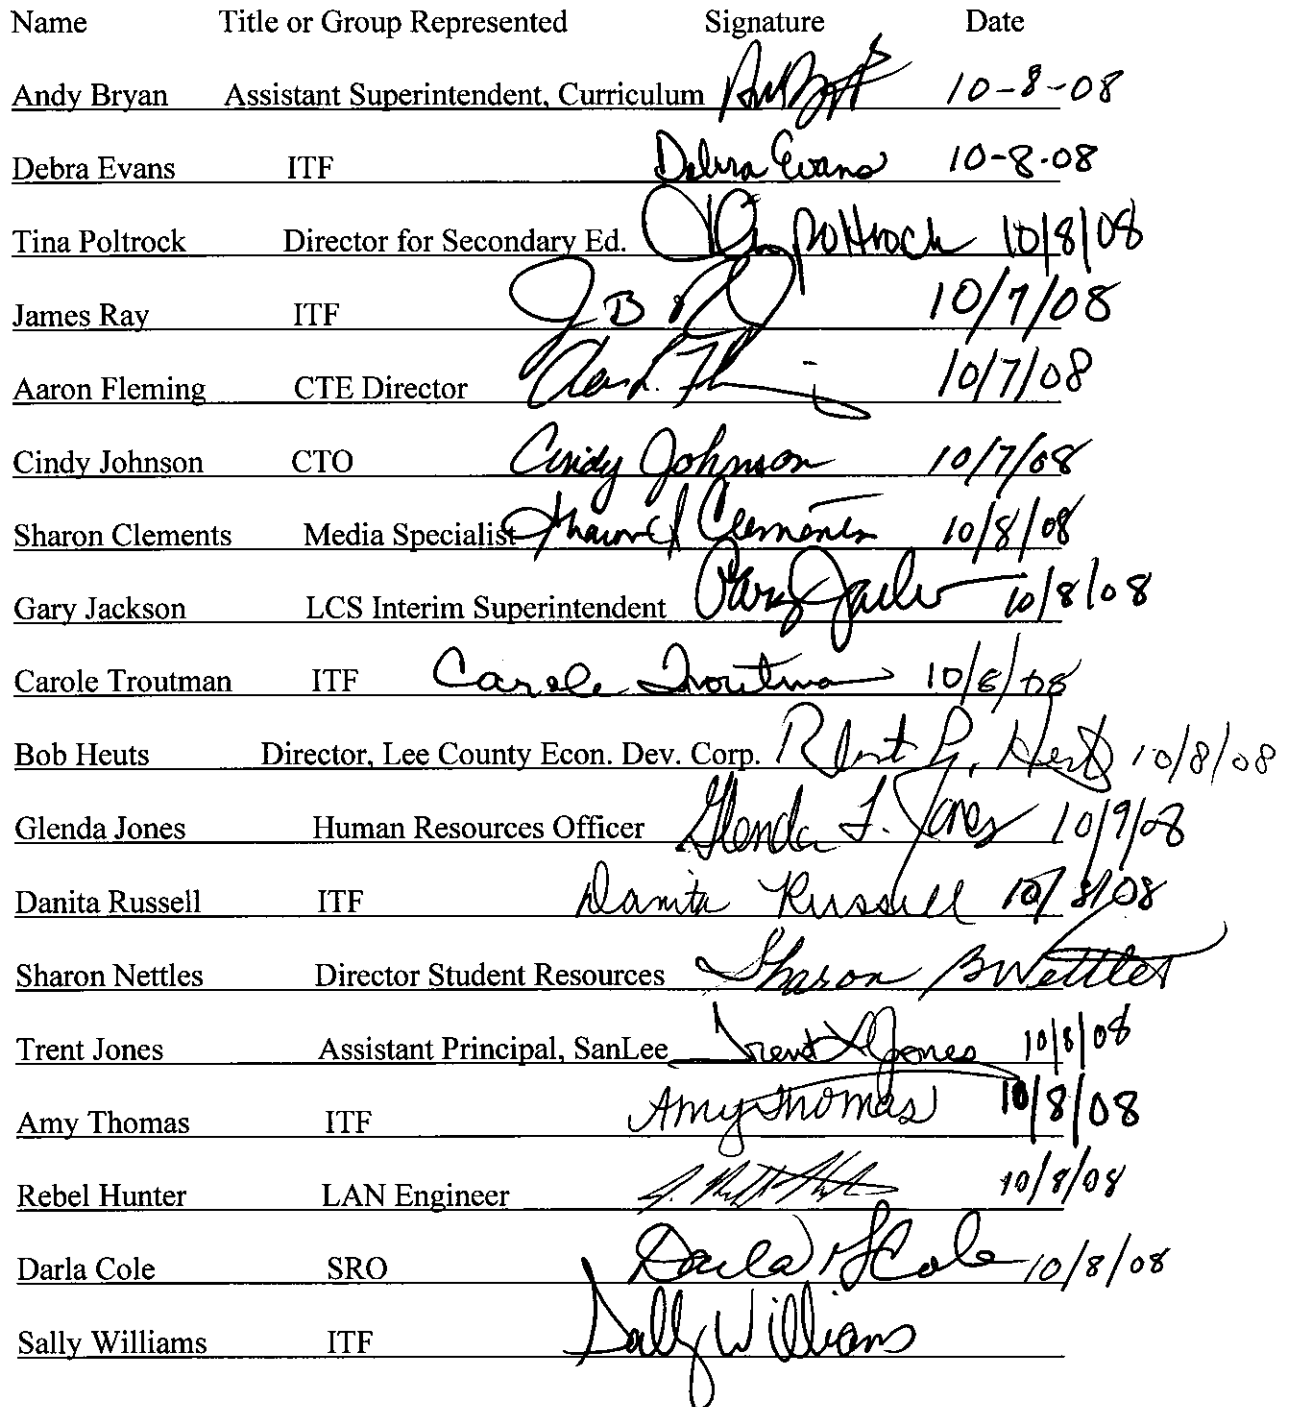 Name Title or Group Represented Signature Date
Andy Bryan Assistant Superintendent, Curriculum 10-8-08
Debra Evans ITF Debra Evans 10-8-08
Tina Poltrock Director for Secondary Ed. Poltrock 10/8/08
James Ray ITF J B 10/7/08
Aaron Fleming CTE Director 10/7/08
Cindy Johnson CTO Cindy Johnson 10/7/08
Sharon Clements Media Specialist Sharon Clements 10/8/08
Gary Jackson LCS Interim Superintendent Gary 10/8/08
Carole Troutman ITF Carole Troutman 10/8/08
Bob Heuts Director, Lee County Econ. Dev. Corp. Robert G. Heuts 10/8/08
Glenda Jones Human Resources Officer Glenda F. Jones 10/9/08
Danita Russell ITF Danita Russell 10/8/08
Sharon Nettles Director Student Resources Sharon B Nettles
Trent Jones Assistant Principal, SanLee Trent Jones 10/8/08
Amy Thomas ITF Amy Thomas 10/8/08
Rebel Hunter LAN Engineer 10/8/08
Darla Cole SRO Darla Cole 10/8/08
Sally Williams ITF Sally Williams